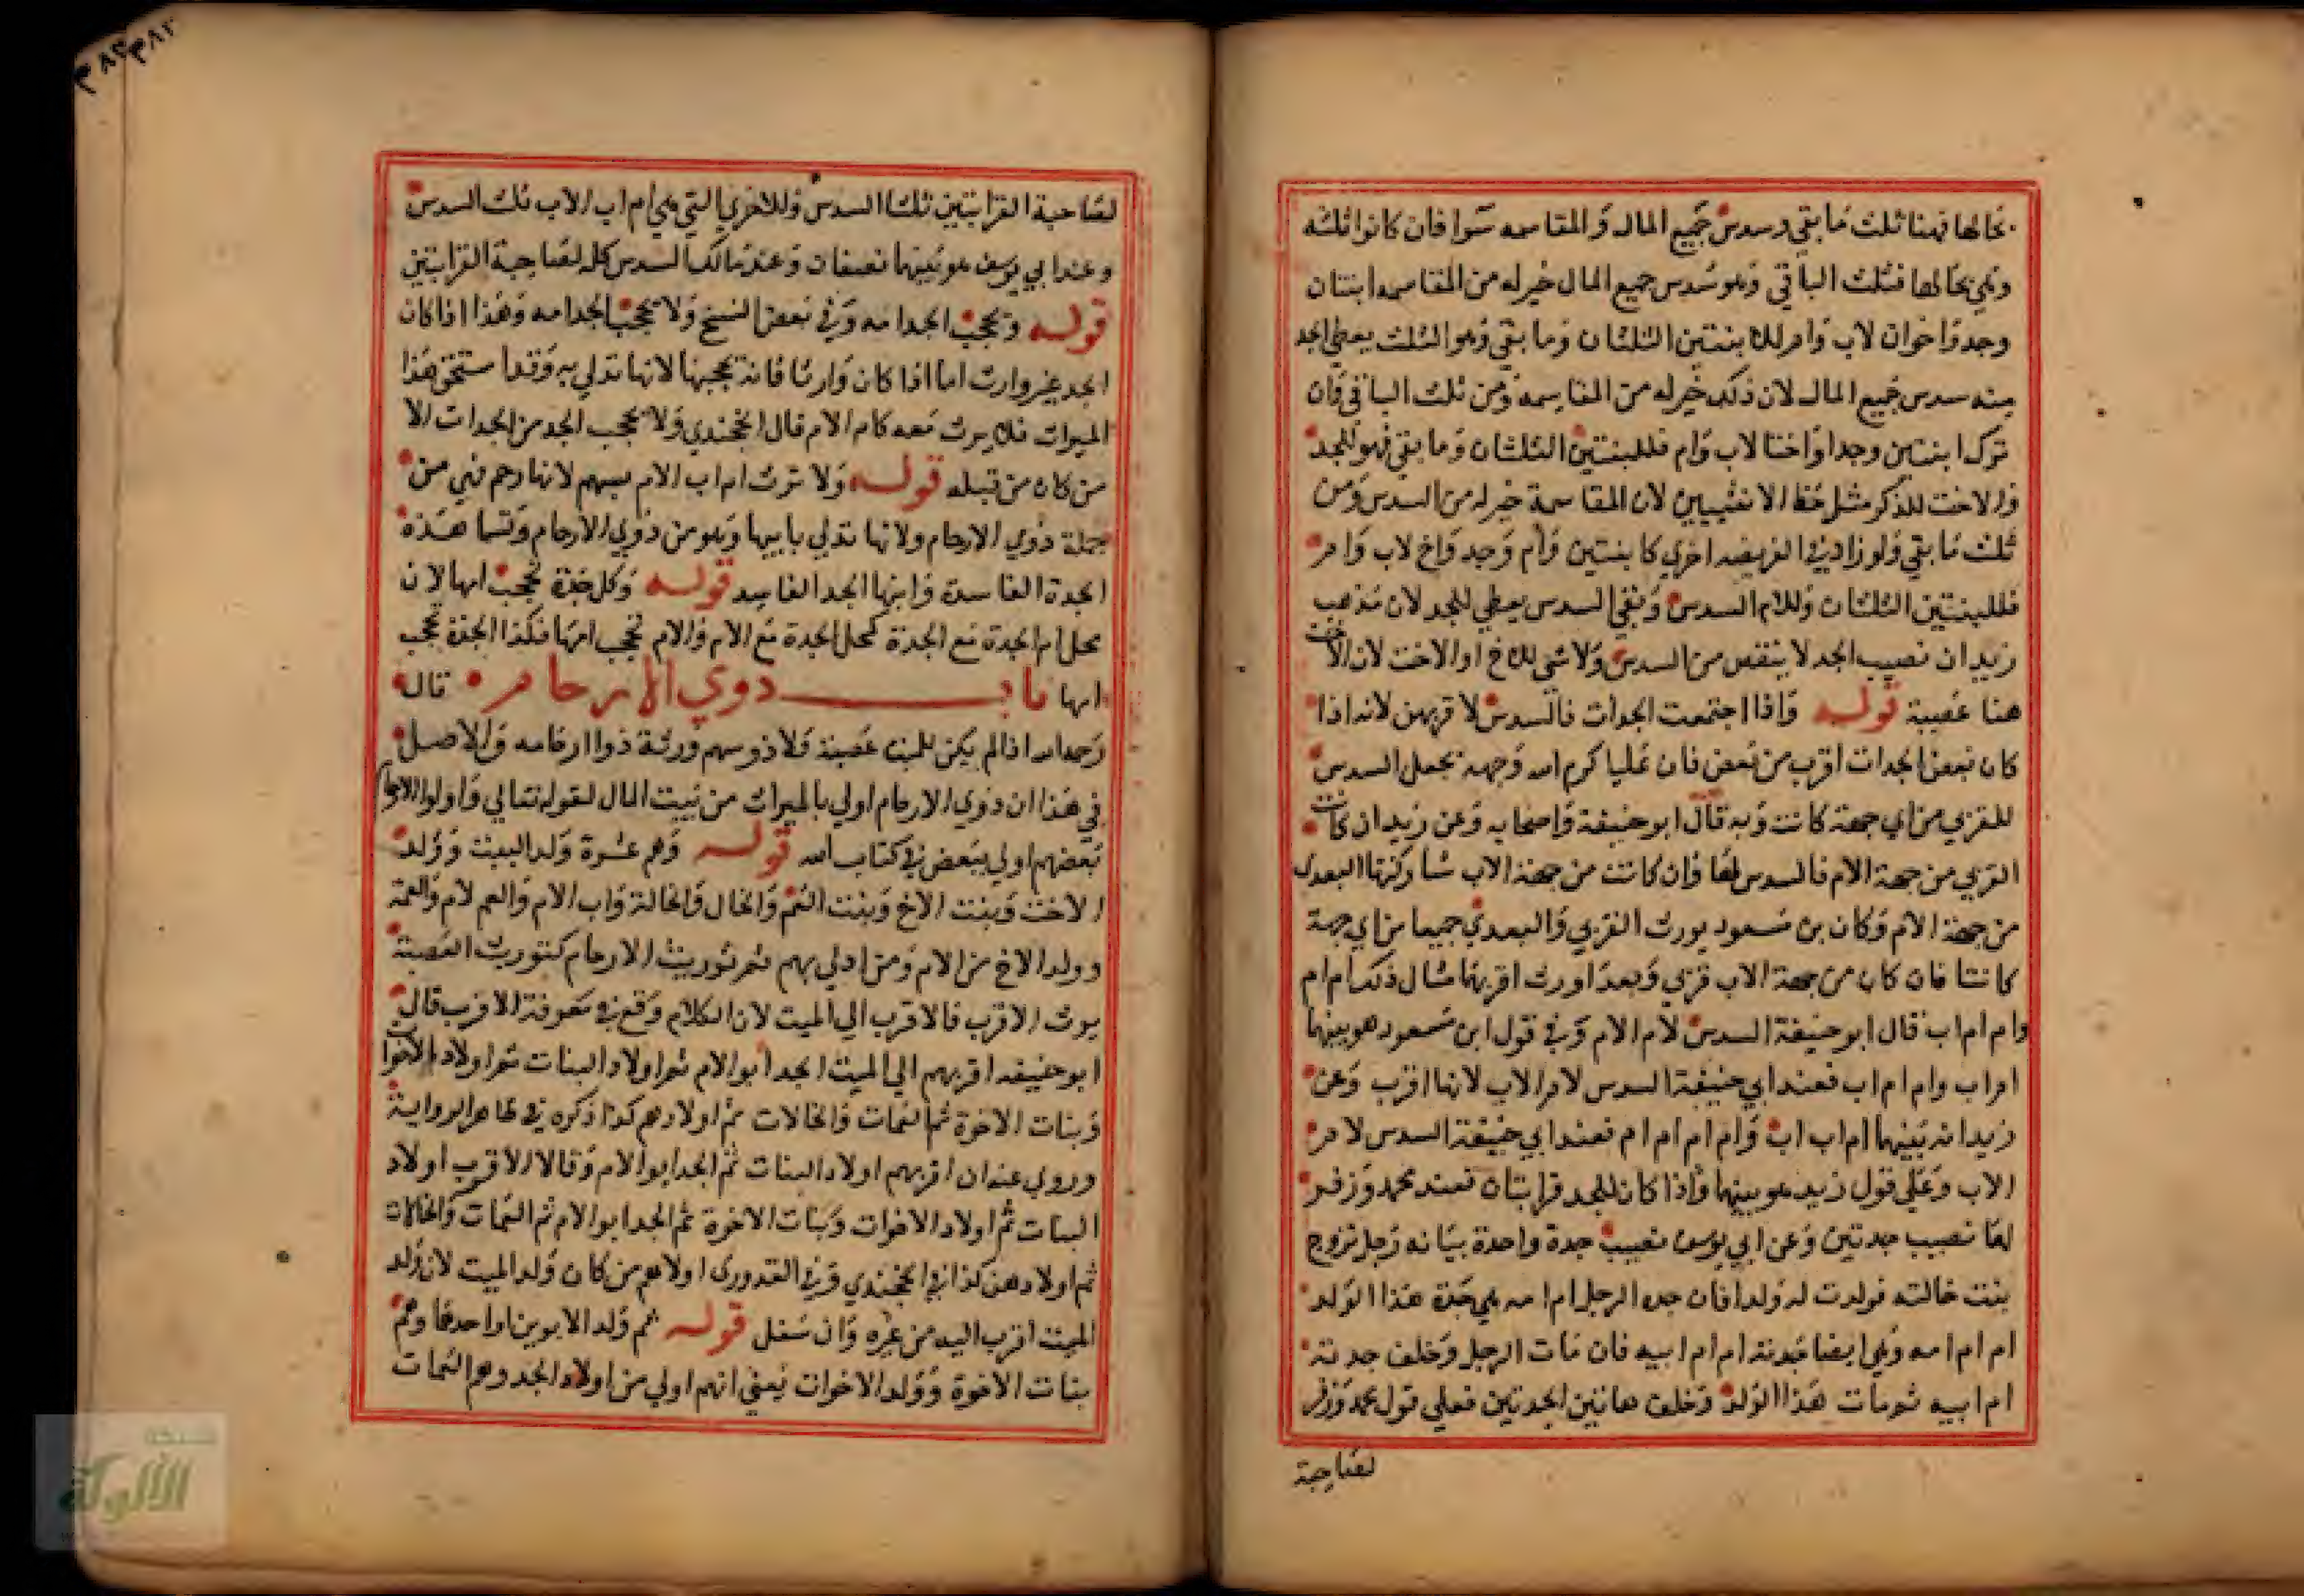 بحالها فهنا ثلث ما بقي وسدس جميع المال والمقاسمه سوا فان كانوا ثلثه
وهي بحالها فثلث الباقي وهو سدس جميع المال خير له من المقاسمه ابنتان
وجد واخوان لاب وام للابنتين الثلثان وما بقي وهو الثلث يعطي الجد
منه سدس جميع المال لان ذلك خير له من المقاسمة ومن ثلث الباقي فان
ترك ابنتين وجدا واختا لاب وام فللبنتين الثلثان وما بقي فهو للجد
والاخت للذكر مثل حظ الانثيين لان المقاسمة خير له من السدس ومن
ثلث ما بقي ولو زاد في الفريضه اخري كابنتين وام وجد واخ لاب وام
فللبنتين الثلثان وللام السدس وبقي السدس يعطي للجد لان مذهب
زيد ان نصيب الجد لا ينقص من السدس ولا شي للاخ او الاخت لان الاخت
هنا عصبة قوله واذا اجتمعت الجدات فالسدس لاقربهن لانه اذا
كان بعض الجدات اقرب من بعض فان عليا كرم الله وجهه يجعل السدس
للقربي من اي جهة كانت وبه قال ابو حنيفة واصحابه وعن زيد ان كانت
القربي من جهة الام فالسدس لها وان كانت من جهة الاب شاركتها البعدي
من جهة الام وكان بن مسعود يورث القربي والبعدي جميعا من اي جهة
كانتا فان كان من جهة الاب قربي وبعدا ورث اقربهما مثال ذلك ام ام
وام ام اب قال ابو حنيفة السدس لام الام وفي قول ابن مسعود هو بينهما
ام اب وام ام اب فعند ابي حنيفة السدس لام الاب لانها اقرب وعن
زيد انه بينهما ام اب اب وام ام ام ام فعند ابي حنيفة السدس لام
الاب وعلي قول زيد هو بينهما واذا كان للجد قرابتان فعند محمد وزفر
لها نصيب جدتين وعن ابي يوسف نصيب جدة واحدة بيانه رجل تزوج
بنت خالته فولدت له ولدا فان جده الرجل ام امه هي جدة هذا الولد
ام ام امه وهي ايضا جدته ام ام ابيه فان مات الرجل وخلف جدته
ام ابيه ثم مات هذا الولد وخلف هاتين الجدتين فعلي قول محمد وزفر
لصاحبة
٣٨٢ ٣٨٢
لصاحبة القرابتين ثلثا السدس وللاخري التي هي ام اب الاب ثلث السدس
وعند ابي يوسف هو بينهما نصفان وعند مالك السدس كله لصاحبة القرابتين
قوله وتحجب الجد امه وفي بعض النسخ ولا يحجب الجد امه وهذا اذا كان
الجد غير وارث اما اذا كان وارثا فانه يحجبها لانها تدلي به وقد استحق هذا
الميراث فلا يرث معه كام الام قال الخجندي ولا يحجب الجد من الجدات الا
من كان من قبله قوله ولا ترث ام اب الام بسهم لانها رحم فهي من
جملة ذوي الارحام ولانها تدلي بابيها وهو من ذوي الارحام وتسما هذه
الجدة الفاسدة وابنها الجد الفاسد قوله وكل جدة تحجب امها لان
محل ام الجدة مع الجدة كمحل الجدة مع الام والام تحجب امها فكذا الجدة تحجب
امها باب ذوي الارحام قال
رحمه الله اذا لم يكن للميت عصبة ولا ذو سهم ورثة ذوا ارحامه والاصل
في هذا ان ذوي الارحام اولي بالميراث من بيت المال لقوله تعالي واولوا الارحام
بعضهم اولي ببعض في كتاب الله قوله وهم عشرة ولد البنت وولد
الاخت وبنت الاخ وبنت العم والخال والخالة واب الام والعم لام والعمة
وولد الاخ من الام ومن ادلي بهم ثم توريث الارحام كتوريث العصبة
يرث الاقرب فالاقرب الي الميت لان الكلام وقع في معرفة الاقرب قال
ابو حنيفه اقربهم الي الميت الجد ابو الام ثم اولاد البنات ثم اولاد الاخوات
وبنات الاخوة ثم العمات والخالات ثم اولادهم كذا ذكره في ظاهر الرواية
وروي عنه ان اقربهم اولاد البنات ثم الجد ابو الام وقالا الاقرب اولاد
البنات ثم اولاد الاخوات وبنات الاخوة ثم الجد ابو الام ثم العمات والخالات
ثم اولادهن كذا في الخجندي وفي القدوري اولاهم من كان ولد الميت لان ولد
الميت اقرب اليه من غيره وان سفل قوله ثم ولد الابوين او احدهما وهم
بنات الاخوة وولد الاخوات يعني انهم اولي من اولاد الجد وهم العمات
شبكة
الألوكة